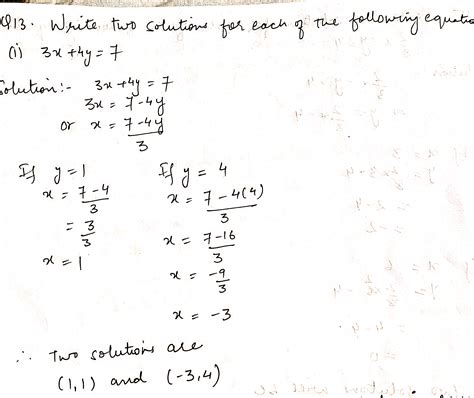 Q13. Write two solutions for each of the following equatio
(i) 3x + 4y = 7
Solution:- 3x + 4y = 7
3x = 7 - 4y
or x = 7 - 4y
3
If y = 1
x = 7 - 4
3
= 3
3
x = 1
If y = 4
x = 7 - 4(4)
3
x = 7 - 16
3
x = -9
3
x = -3
∴ Two solutions are
(1,1) and (-3,4)